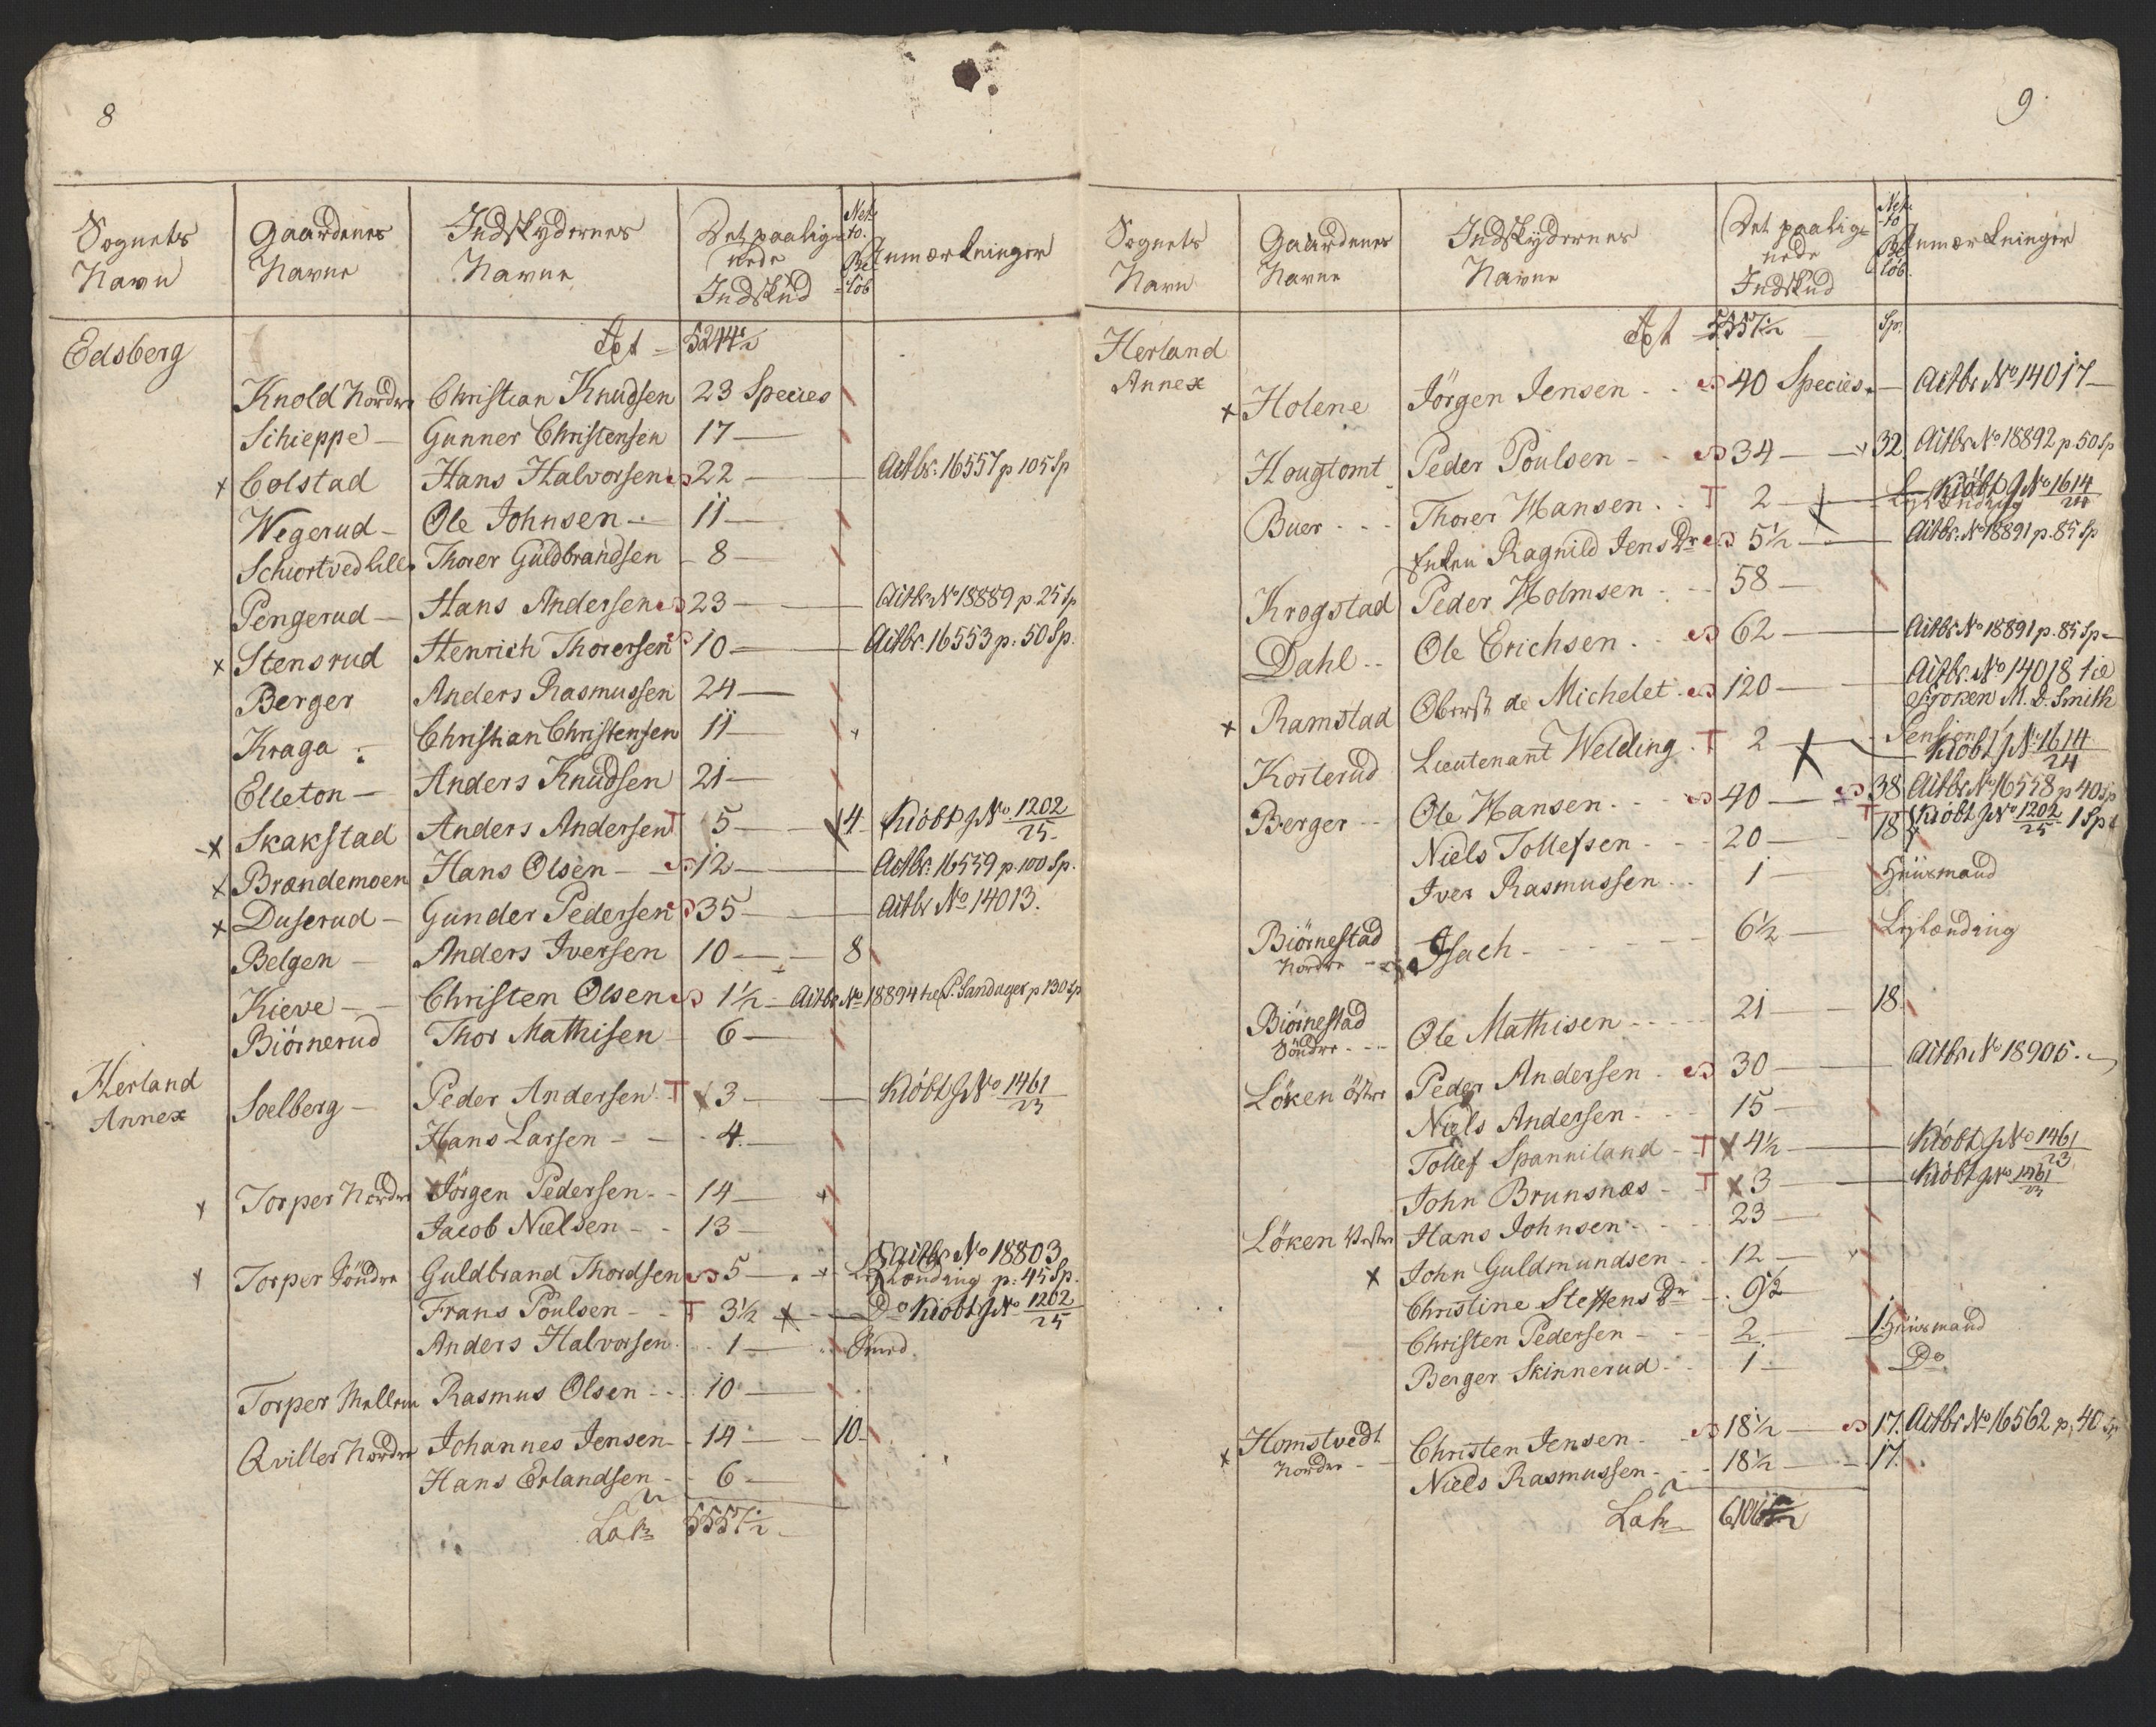 8
Sognets Navn | Gaardenes Navne | Indskydernes Navne | Det paalignede Indskud | Netto Beløb | Anmærkninger
Edsberg
5244½
Knold Nordre Christian Knudsen 23 Species
Schieppe - Gunner Christensen 17 -
x Colstad Hans Halvorsen 22 - Actbr. 16557 p 105 Sp
Wegerud - Ole Johnsen - 11 -
Schiortved Lille Thorer Guldbrandsen - 8 -
Pengerud - Hans Andersen 23 - Actbr No 18889 p 25 Sp
x Stensrud Henrich Thorersen 10 - Actbr. 16553 p. 50 Sp.
Berger Anders Rasmussen 24 -
Kraga Christian Christensen 11 -
Elleton - Anders Knudsen 21 -
x Skakstad Anders Andersen T 5 - 4 - Kiöbt No 1202/25
x Brændemoen Hans Olsen - 12 - Actbr. 16559 p. 100 Sp.
x Duserud - Gunder Pedersen 35 - Actbr No 14013.
Belgen - Anders Iversen 10 - 8
Kieve - Christen Olsen 1½ - Actbr No 18894 p 130 Sp
Biörnerud Thor Mathisen - 6 -
Herland
Annex
Soelberg - Peder Andersen T x 3 - Kiöbt No 1461/23
Hans Larsen - 4. -
x Torper Nordre Jörgen Pedersen - 14 -
Jacob Nielsen - 13 -
x Torper Söndre Guldbrand Thordsen 5 - Actbr No 18803
Leylænding p. 45 Sp.
Frans Poulsen - T 3½ x - Do Kiöbt No 1202/25
Anders Halvorsen 1 -
Torper Mellem Rasmus Olsen - 10 -
Qviller Nordre Johannes Jensen - 14 - 10 -
Hans Erlandsen - 6 -
Lat 5557½
9
Sognets Navn | Gaardenes Navne | Indskydernes Navne | Det paalignede Indskud | Netto Beløb | Anmærkninger
Herland
Annex
5557½ Sp.
x Holene Jörgen Jensen - 40 Species - Actbr No 14017 -
Hougtomt Peder Poulsen - 34 - 32 Actbr No 18892 p 50 Sp
Buer - Thorer Hansen - T 2 - Leylænding Kiöbt No 1614/24
Enken Ragnild Jens Dr 5½ - Actbr. No 18891 p. 85 Sp
Krogstad Peder Holmsen - 58 -
Dahl - Ole Erichsen - 62 - Actbr No 18891 p. 85 Sp -
x Ramstad Oberst de Michelet 120 - Actbr. No 14018 til
Frøken M. D. Smith
Korterud Lieutenant Welding T 2 - Pension Kiöbt No 1614/24
Berger - Ole Hansen - 40 - 38 Actbr No 16558 p 40 Sp
Niels Tollefsen - 20 - 18 Kiöbt No 1202/25 1 Sp
Iver Rasmussen - 1 - Huusmand
Biörnestad Nordre - Isach - 6½ - Leylænding
Biörnestad Söndre - Ole Mathisen - 21 - 18
Löken östre Peder Andersen - 30 - Actbr No 18905. -
Niels Andersen - 15 -
Tollef Spanniland - T x 4½ - Kiöbt No 1461/23
John Brunsnæs - T x 3 - Kiöbt No 1461/23
Löken Vestre Hans Johnsen - 23 -
x John Guldmundsen - 12 -
Christine Steffens Dr - 9½
Christen Pedersen - 2. - 1. Huusmand
Berger Skinnerud - 1 - Do
x Homstvedt Nordre - Christen Jensen - 18½ - 17. Actbr No 16562 p. 40 Sp
Niels Rasmussen - 18½ - 17.
Lat